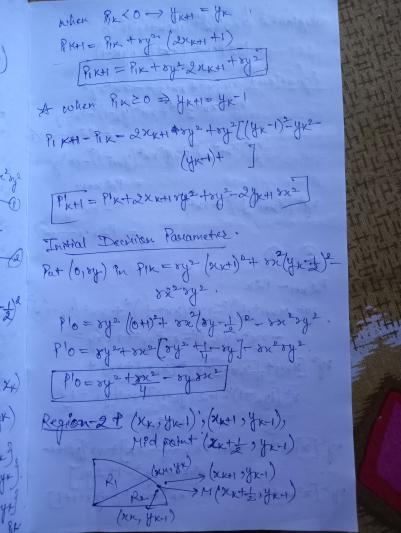 when Pk < 0 → yk+1 = yk
Pk+1 = Pk + ry² (2xk+1 + 1)
P1k+1 = P1k + ry² 2xk+1 + ry²
when P1k ≥ 0 ⇒ yk+1 = yk-1
P1k+1 - P1k = 2xk+1 ry² + ry² [(yk-1)² - yk² -
(yk-1) + ]
P'k+1 = P'k + 2xk+1 ry² + ry² - 2yk+1 rx²
Initial Decision Parameter.
Put (0, ry) in P1k = ry² (xk+1)² + rx² (yk-1/2)² -
rx² ry².
P'0 = ry² (0+1)² + rx² (ry - 1/2)² - rx² ry².
P'0 = ry² + rx² [ry² + 1/4 - ry] - rx² ry².
P'0 = ry² + rx²/4 - ry rx²
Region-2 (xk, yk-1), (xk+1, yk-1),
Mid point (xk + 1/2, yk-1)
(xk, yk)
R1
→ (xk+1, yk-1)
R2
→ M (xk + 1/2, yk-1)
(xk, yk-1)